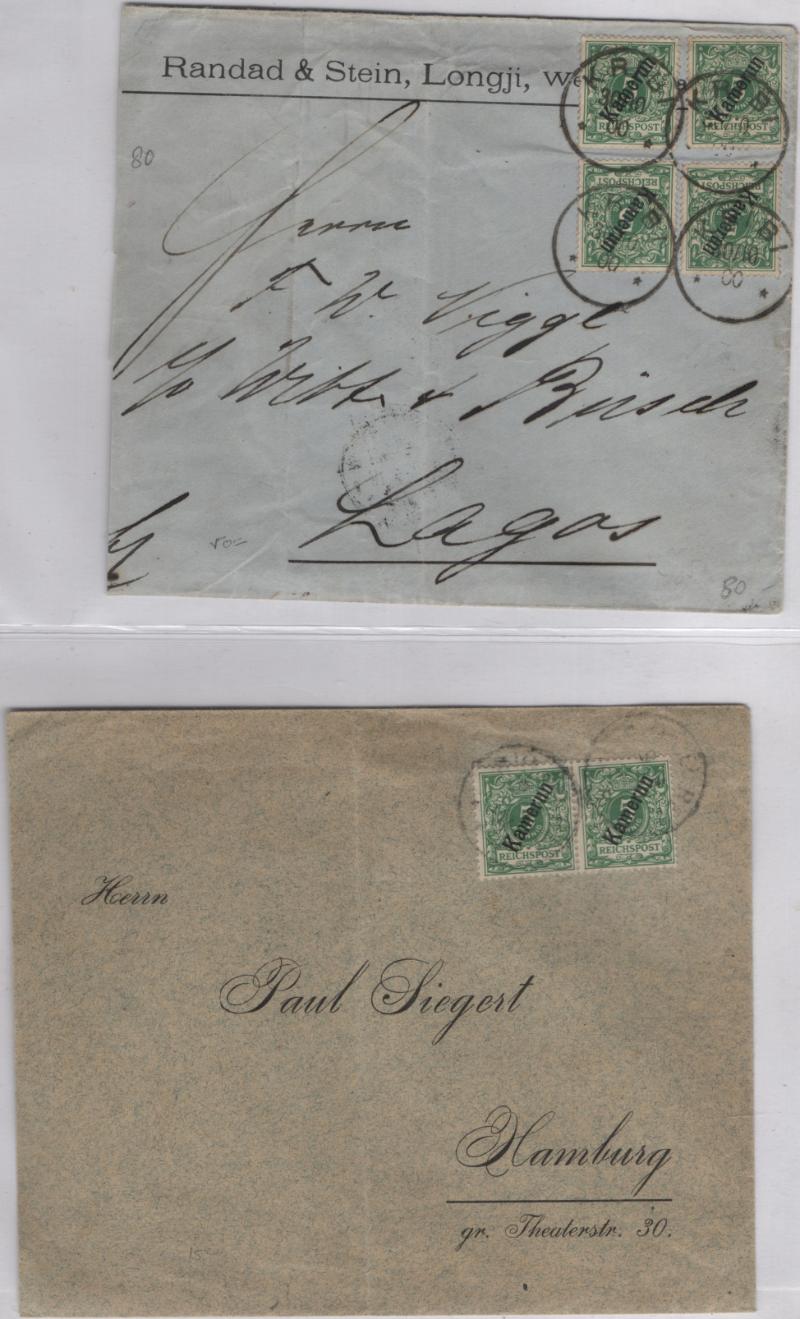 Randad & Stein, Longji, We
Kamerun
REICHSPOST
Kamerun
REICHSPOST
Kamerun
REICHSPOST
Kamerun
REICHSPOST
KRIBI
KRIBI
KRIBI
KRIBI
80
Herrn
F. W. Viggl
c/o Witt & Büsch
Lagos
80
Kamerun
REICHSPOST
Kamerun
REICHSPOST
Herrn
Paul Siegert
Hamburg
gr. Theaterstr. 30.